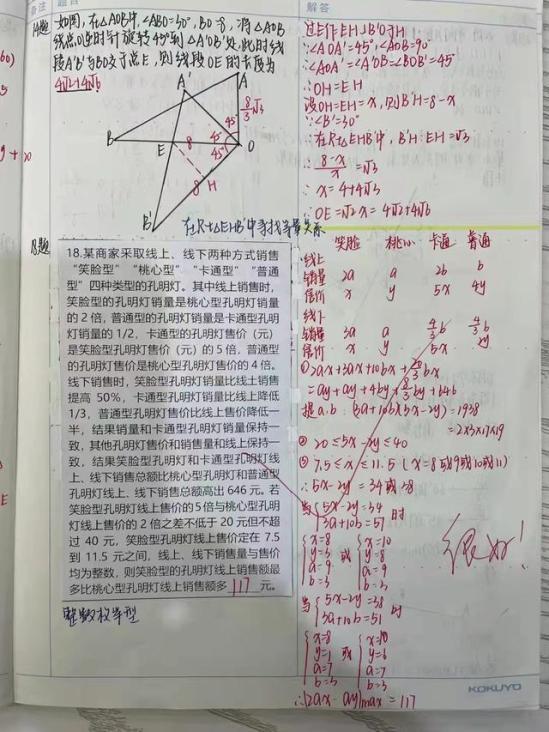 备注
题目
解答
14题
如图,在△AOB中,∠ABO=30°,BO=8,将△AOB
绕点O逆时针旋转45°到△A'OB'处,此时线
段A'B'与BO交于点E,则线段OE的长度为
4√2+4√6
A'
A
8/3√3
45°
45°
45°
B
E
8
O
8
H
B'
在Rt△EHB'中寻找等量关系
过E作EH⊥B'O于H
∵∠AOA'=45°,∠AOB=90°
∴∠AOA'=∠A'OB=∠BOB'=45°
∴OH=EH
设OH=EH=x,则B'H=8-x
∵∠B'=30°
∴在Rt△EHB'中,B'H:EH=√3
∴8-x/x=√3
∴x=4+4√3
∴OE=√2x=4√2+4√6
18题
18.某商家采取线上、线下两种方式销售
“笑脸型”“桃心型”“卡通型”“普通
型”四种类型的孔明灯。其中线上销售时,
笑脸型的孔明灯销量是桃心型孔明灯销量
的 2 倍,普通型的孔明灯销量是卡通型孔明
灯销量的 1/2,卡通型的孔明灯售价(元)
是笑脸型孔明灯售价(元)的 5 倍,普通型
的孔明灯售价是桃心型孔明灯售价的 4 倍。
线下销售时,笑脸型孔明灯销量比线上销售
提高 50%,卡通型孔明灯销量比线上降低
1/3,普通型孔明灯售价比线上售价降低一
半,结果销量和卡通型孔明灯销量保持一
致,其他孔明灯售价和销售量和线上保持一
致,结果笑脸型孔明灯和卡通型孔明灯线
上、线下销售总额比桃心型孔明灯和普通型
孔明灯线上、线下销售总额高出 646 元。若
笑脸型孔明灯线上售价的 5 倍与桃心型孔明
灯线上售价的 2 倍之差不低于 20 元但不超
过 40 元,笑脸型孔明灯线上售价定在 7.5
到 11.5 元之间,线上、线下销售量与售价
均为整数,则笑脸型的孔明灯线上销售额最
多比桃心型孔明灯线上销售额多 117 元。
整数权等型
笑脸 桃心 卡通 普通
线上
销量 2a a 2b b
售价 x y 5x 4y
线下
销量 3a a 4/3b 4/3b
售价 x y 5x 2y
提a,b:(3a+10b)(5x-2y)=1938
=2×3×17×19
② 20≤5x-2y≤40
③ 7.5≤x≤11.5(x=8或9或10或11)
∴5x-2y=34或38
当{5x-2y=34
3a+10b=57 时
{x=8
y=3
a=9
b=3
或
{x=10
y=8
a=9
b=3
当{5x-2y=38
3a+10b=51 时
{x=8
y=1
a=7
b=3
或
{x=10
y=6
a=7
b=3
∴(2ax-ay)max=117
很好!
KOKUYO